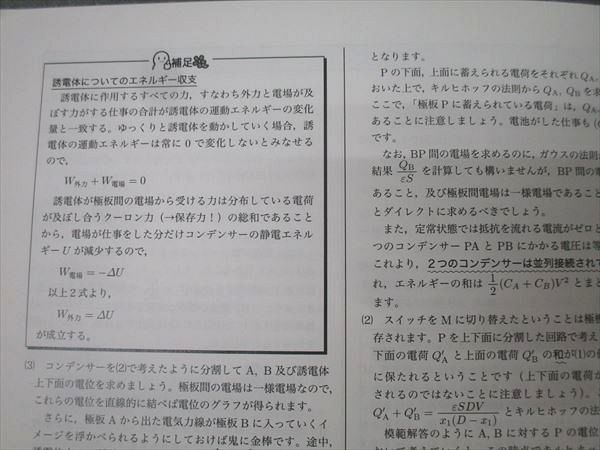 補足
誘電体についてのエネルギー収支
誘電体に作用するすべての力，すなわち外力と電場が及
ぼす力がする仕事の合計が誘電体の運動エネルギーの変化
量と一致する。ゆっくりと誘電体を動かしていく場合，誘
電体の運動エネルギーは常に 0 で変化しないとみなせる
ので，
W外力 + W電場 = 0
誘電体が極板間の電場から受ける力は分布している電荷
が及ぼし合うクーロン力 (→保存力！) の総和であること
から，電場が仕事をした分だけコンデンサーの静電エネル
ギー U が減少するので，
W電場 = −ΔU
以上2式より，
W外力 = ΔU
が成立する。
(3) コンデンサーを(2)で考えたように分割して A，B 及び誘電体
上下面の電位を求めましょう。極板間の電場は一様電場なので，
これらの電位を直線的に結べば電位のグラフが得られます。
さらに，極板 A から出た電気力線が極板 B に入っていくイ
メージを浮かべられるようにしておけば鬼に金棒です。途中，
となります。
P の下面，上面に蓄えられる電荷をそれぞれ QA，
おいた上で，キルヒホッフの法則から QA，QB を求
ここで，「極板 P に蓄えられている電荷」は，QA，
あることに注意しましょう。電池がした仕事も(
です。
なお，BP 間の電場を求めるのに，ガウスの法則
結果 QB/εS を計算しても構いませんが，BP 間の電
あること，及び極板間電場は一様電場であること
とダイレクトに求めるべきでしょう。
また，定常状態では抵抗を流れる電流がゼロと
つのコンデンサー PA と PB にかかる電圧は等
これより，2つのコンデンサーは並列接続されて
れ，エネルギーの和は 1/2 (CA + CB)V² とまと
ます。
(2) スイッチを M に切り替えたということは極板
存されます。P を上下面に分割した回路で考え
下面の電荷 Q′A と上面の電荷 Q′B の和が(1)の値
に保たれるということです (上下面の電荷が
されるのではないことに注意しましょう)。
Q′A + Q′B = εSDV/x1(D − x1) とキルヒホッフの法
模範解答のように A，B に対する P の電位